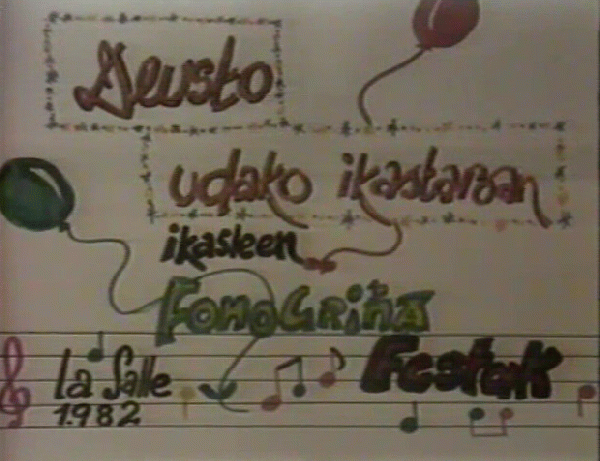 Deusto
udako ikastaroan
ikasleen
Fonogriña
Festak
La Salle
1.982